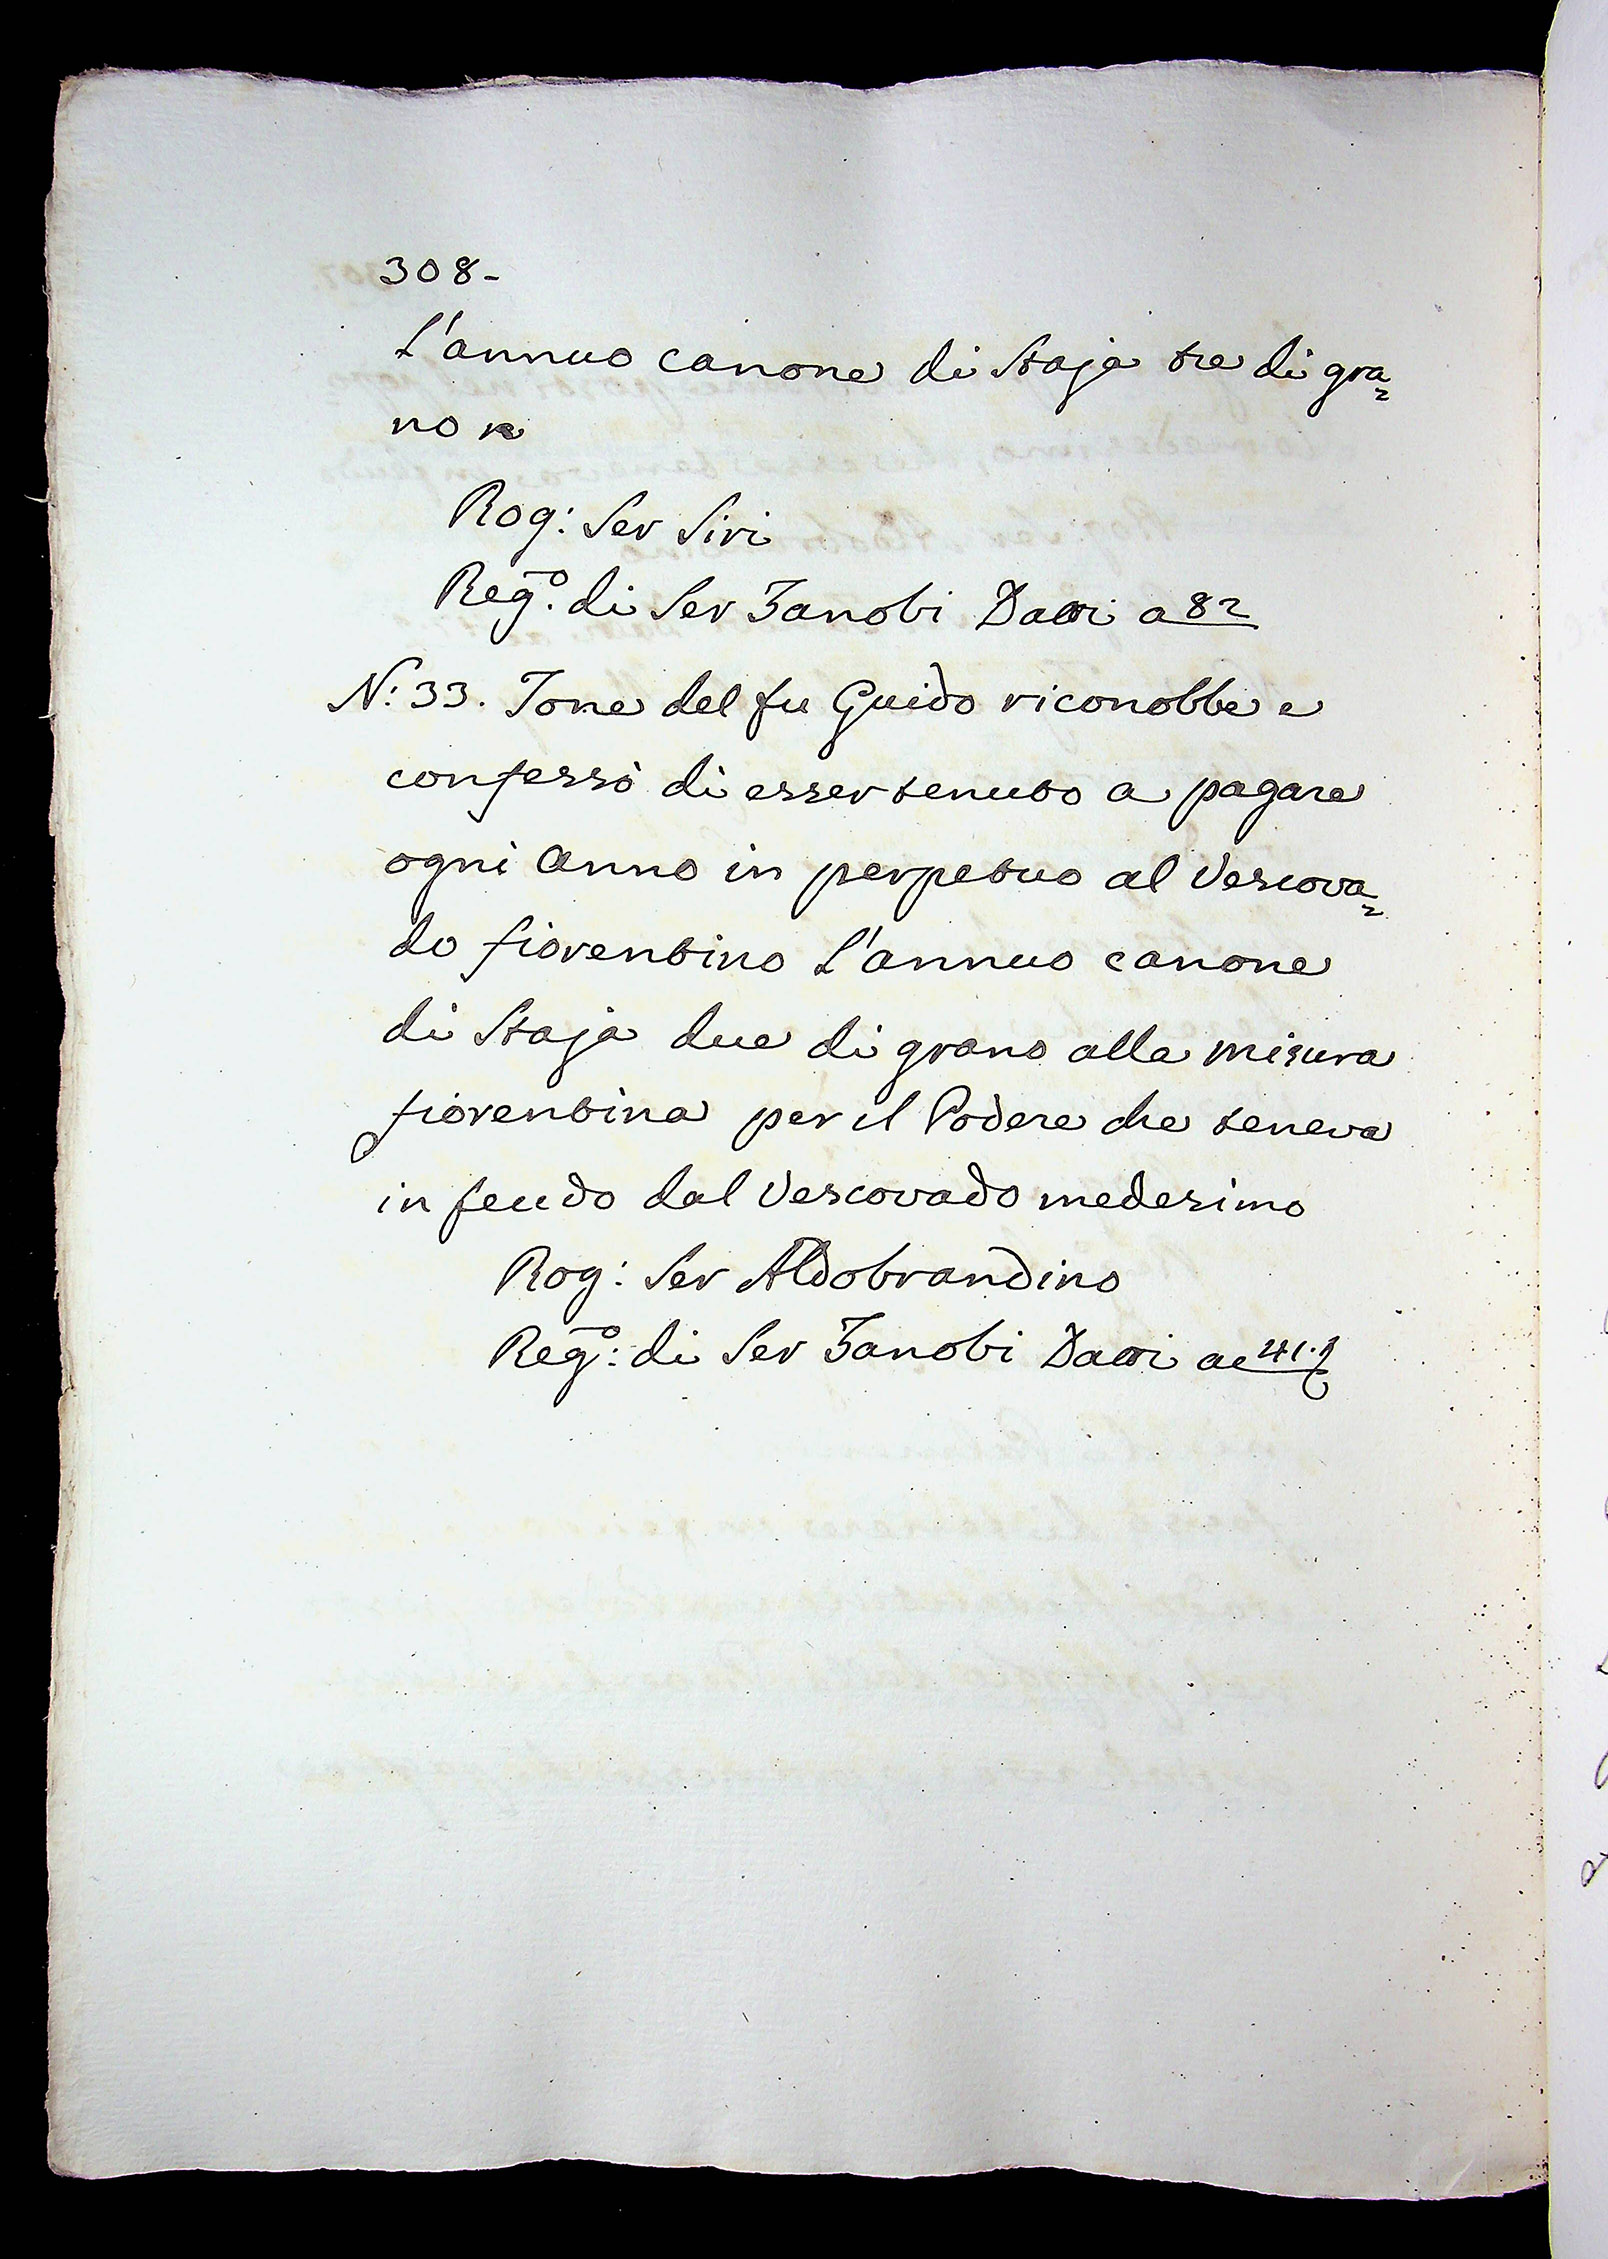 308-
L'annuo canone di Staja tre di gra=
no
Rog: Ser Siri
Reg.o di Ser Zanobi a 82
N: 33. Tone del fu Guido riconobbe e
confessò di esser tenuto a pagare
ogni anno in perpetuo al Vescova=
do fiorentino l'annuo canone
di Staja due di grano alla misura
fiorentina per il Podere che teneva
in feudo dal Vescovado medesimo
Rog: Ser Aldobrandino
Reg:o di Ser Zanobi a 41.